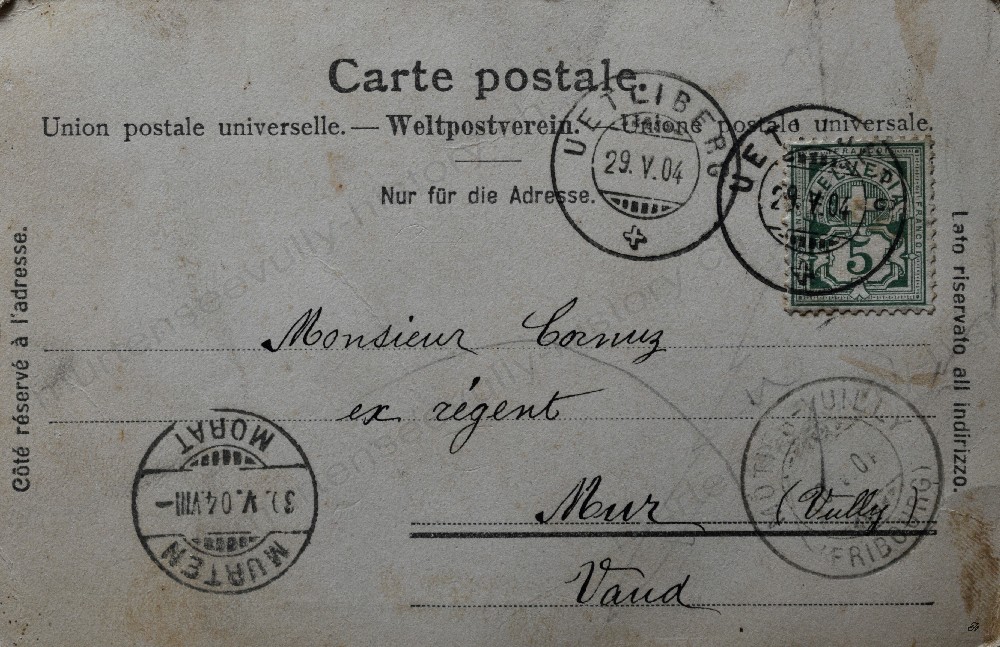 Carte postale.
Union postale universelle. — Weltpostverein. — Unione postale universale.
Nur für die Adresse.
Côté réservé à l'adresse.
Lato riservato all indirizzo.
UETLIBERG
29. V. 04
29. V. 04
HELVETIA
FRANCO
5
Monsieur Cornuz
ex régent
Mur (Vully)
Vaud
MORAT
V. 04. VIII
MURTEN
VUILLY
(FRIBOURG)
murtenseevully-history.